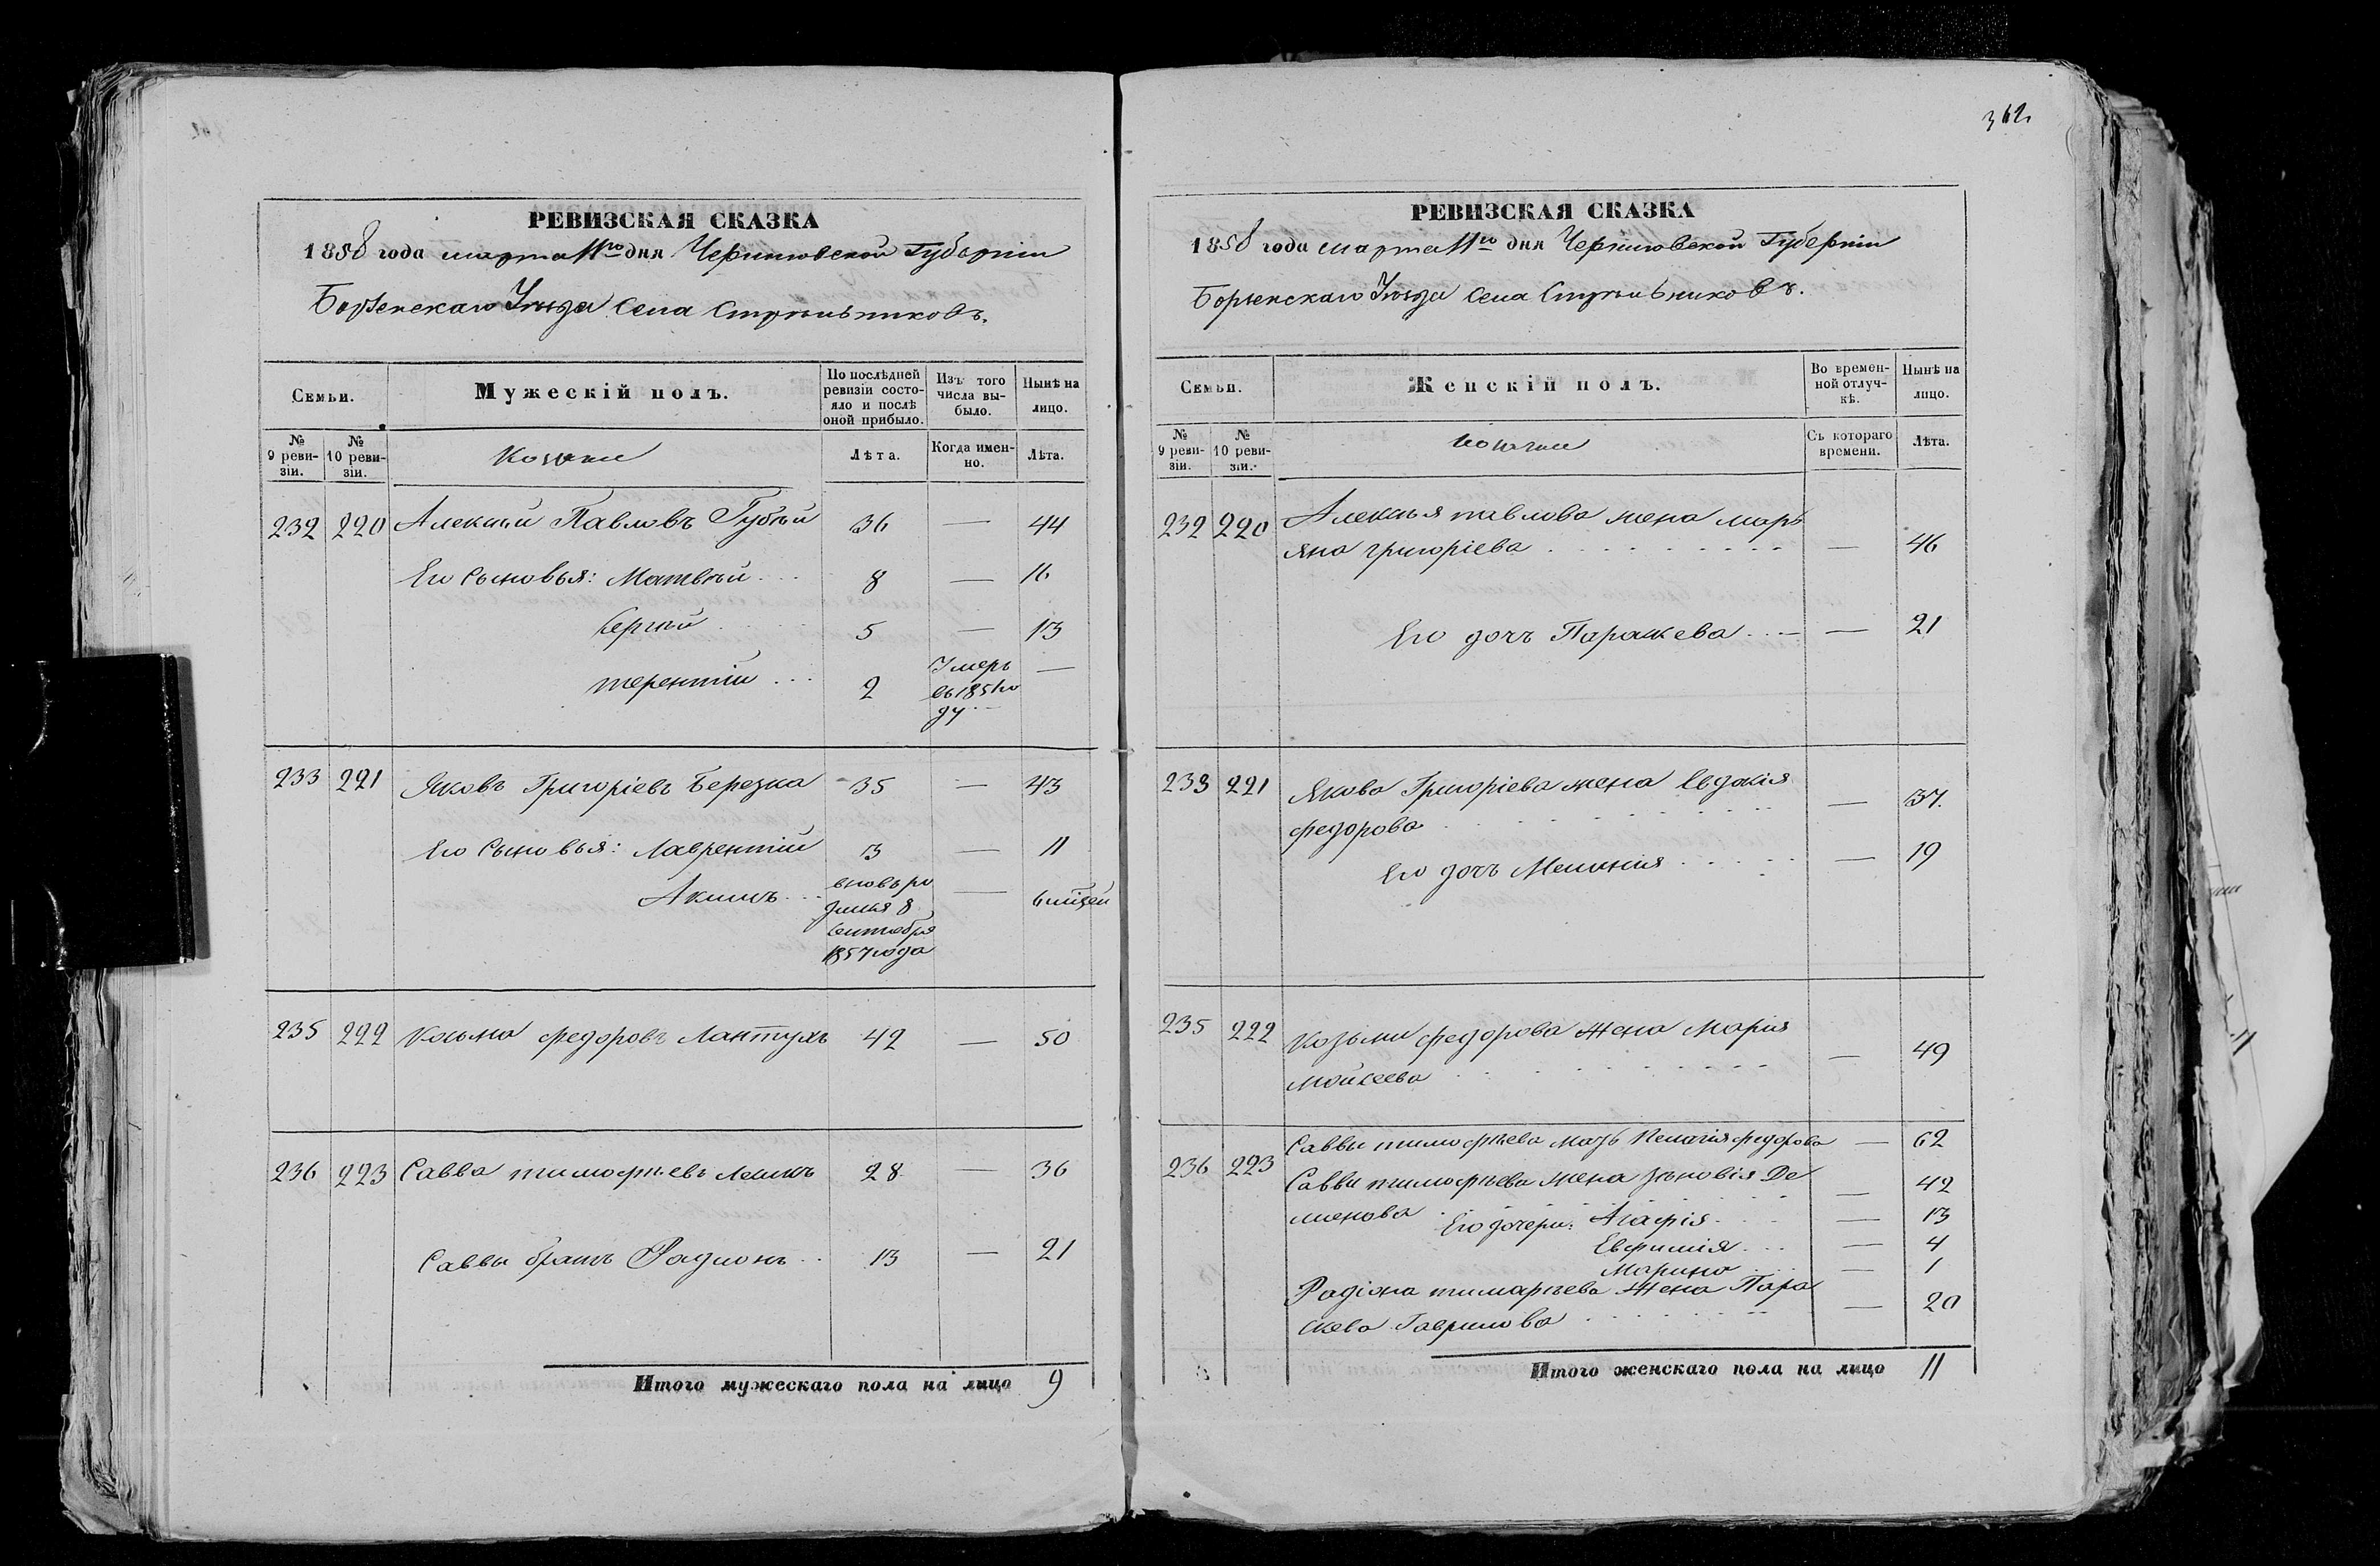 РЕВИЗСКАЯ СКАЗКА
1858 года марта 11го дня Черниговской Губерніи
Борзенскаго Уѣзда Села Стрѣльниковъ.
Семьи.
Мужескій полъ.
По послѣдней ревизіи состояло и послѣ оной прибыло.
Изъ того числа выбыло.
Нынѣ на лицо.
№ 9 ревизіи.
№ 10 ревизіи.
Козаки
Лѣта.
Когда именно.
Лѣта.
232 220 Алексѣй Павловъ Губѣй 36 — 44
Его Сыновья: Матвѣй 8 — 16
Сергѣй 5 — 13
терентій 2 Умеръ —
въ 185 го
ду
233 221 Яковъ Григоріевъ Березка 35 — 43
Его Сыновья: Лаврентій 3 — 11
Акимъ вновь ро — 6 мѣсяцей
дился 8
Сентября
1857 года
235 222 Козьма федоровъ Лантухъ 42 — 50
236 223 Савва тимофѣевъ 28 — 36
Саввы братъ Радионъ 13 — 21
Итого мужескаго пола на лицо 9
362.
РЕВИЗСКАЯ СКАЗКА
1858 года марта 11го дня Черниговской Губерніи
Борзенскаго Уѣзда Села Стрѣльниковъ.
Семьи.
Женскій полъ.
Во временной отлучкѣ.
Нынѣ на лицо.
№ 9 ревизіи.
№ 10 ревизіи.
Козачки
Съ котораго времени.
Лѣта.
232 220 Алексѣя павлова жена марь
яна григоріева — 46
Его дочъ Параскева — 21
233 221 Якова Григоріева жена Евдокія
федорова — 37.
Его дочъ Меланія — 19
235 222 Козьмы федорова Жена Марія
мойсеева — 49
236 223 Саввы тимофѣева мать Пелагія федорова — 62
Саввы тимофѣева жена Зѣновія Де
мьянова — 42
Его дочери: Агафія — 13
Евфимія — 4
Марина — 1
Радіона тимофѣева Жена Пара
скева Гаврилова — 20
Итого женскаго пола на лицо 11